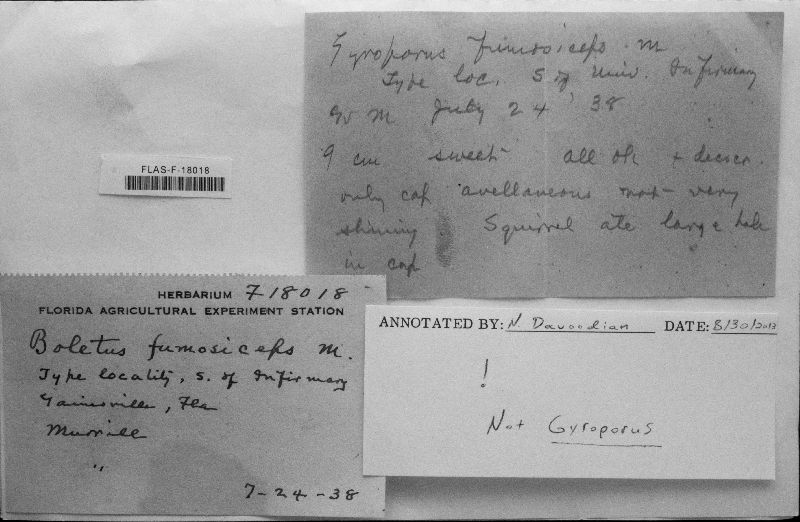 Gyroporus fumosiceps m
Type loc. S of Univ. Infirmary
W M July 24 '38
9 cm sweet all ok + descr.
only cap avellaneous not very
shining Squirrel ate large hole
in cap
FLAS-F-18018
HERBARIUM F18018
FLORIDA AGRICULTURAL EXPERIMENT STATION
Boletus fumosiceps M.
Type locality, S. of Infirmary
Gainesville, Fla
Murrill
"
7-24-38
ANNOTATED BY: N. Davoodian DATE: 8/30/2013
!
Not Gyroporus